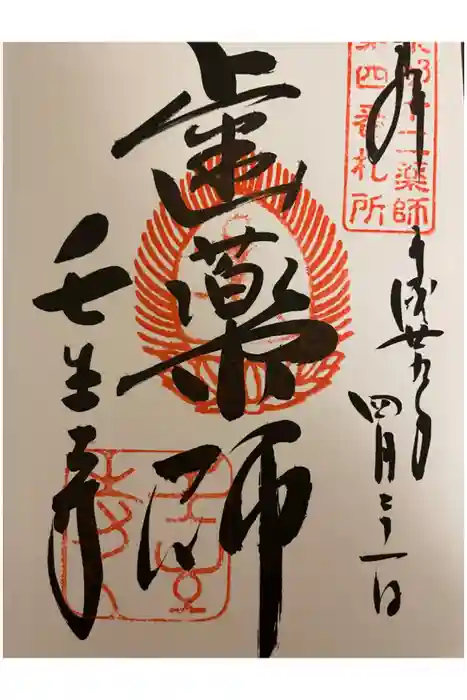 拝
京都十二薬師
第四番札所
平成廿九年四月二十一日
歯薬師
壬生寺